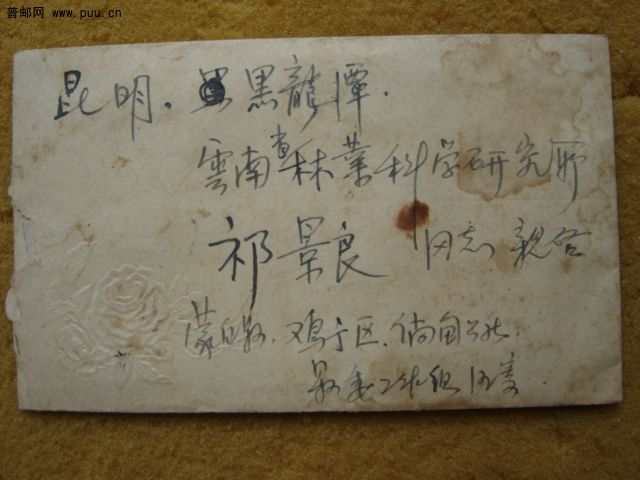 普邮网 www.puu.cn
昆明. 黑龍潭.
雲南省林業科学研究所
祁景良 同志 親啓
蒙自縣. 鸡
区. 倘甸
工作组